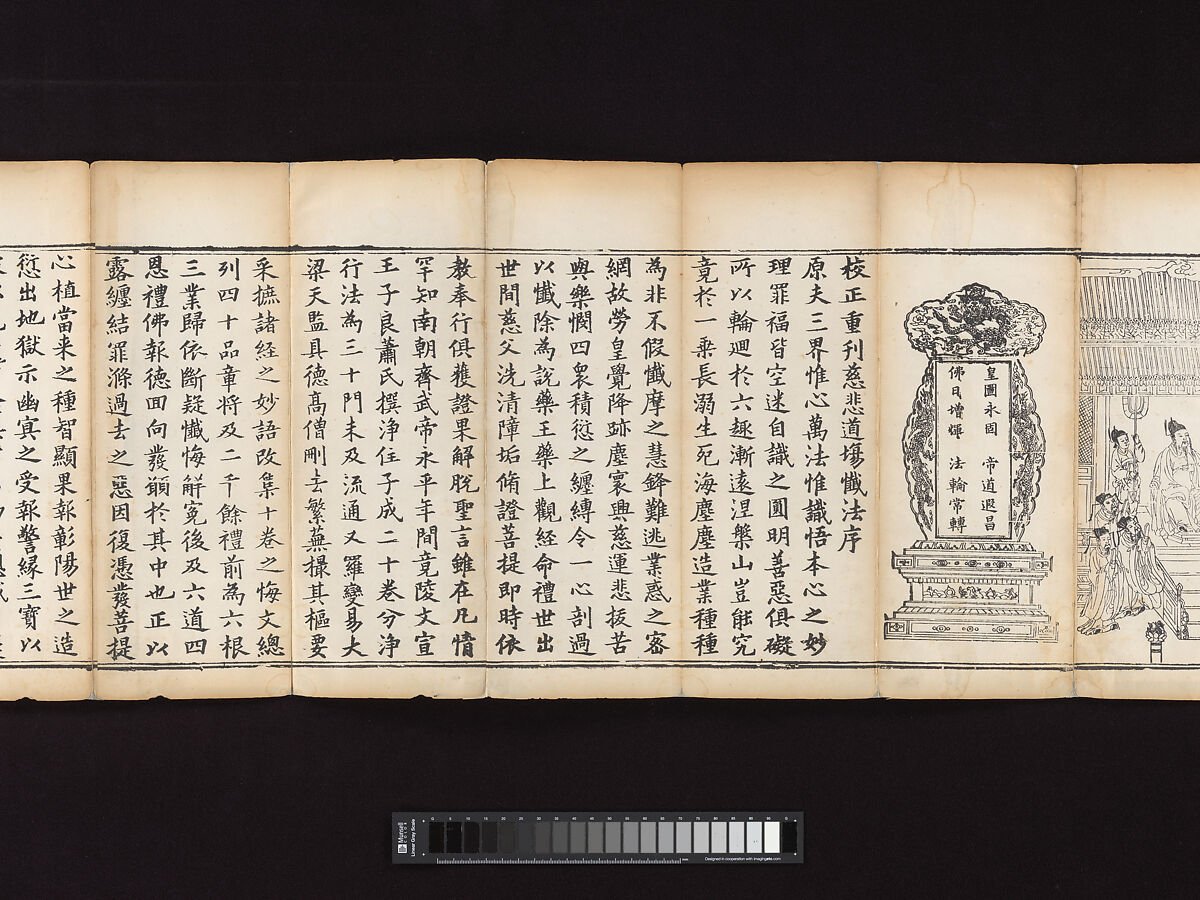 皇圖永固 帝道遐昌
佛日增輝 法輪常轉
校正重刊慈悲道塲懺法序
原夫三界惟心萬法惟識悟本心之妙
理罪福皆空迷自識之圓明善惡俱礙
所以輪迴於六趣漸遠涅槃山豈能究
竟於一乘長溺生死海塵塵造業種種
為非不假懺摩之慧鋒難逃業惑之密
網故勞皇覺降跡塵寰興慈運悲拔苦
與樂憫四衆積愆之纏縛令一心剖過
以懺除為說藥王藥上觀經命禮世出
世間慈父洗清障垢脩證菩提即時依
教奉行俱獲證果解脫聖言雖在凡情
罕知南朝齊武帝永平年間竟陵文宣
王子良蕭氏撰淨住子成二十卷分淨
行法為三十門未及流通又羅變易大
梁天監具德高僧刪去繁蕪撮其樞要
采摭諸經之妙語改集十卷之悔文總
列四十品章將及二千餘禮前為六根
三業歸依斷疑懺悔解冤後及六道四
恩禮佛報德回向發願於其中也正以
露纏結罪滌過去之惡因復憑發菩提
心植當来之種智顯果報彰陽世之造
愆出地獄示幽冥之受報警緣三寶以